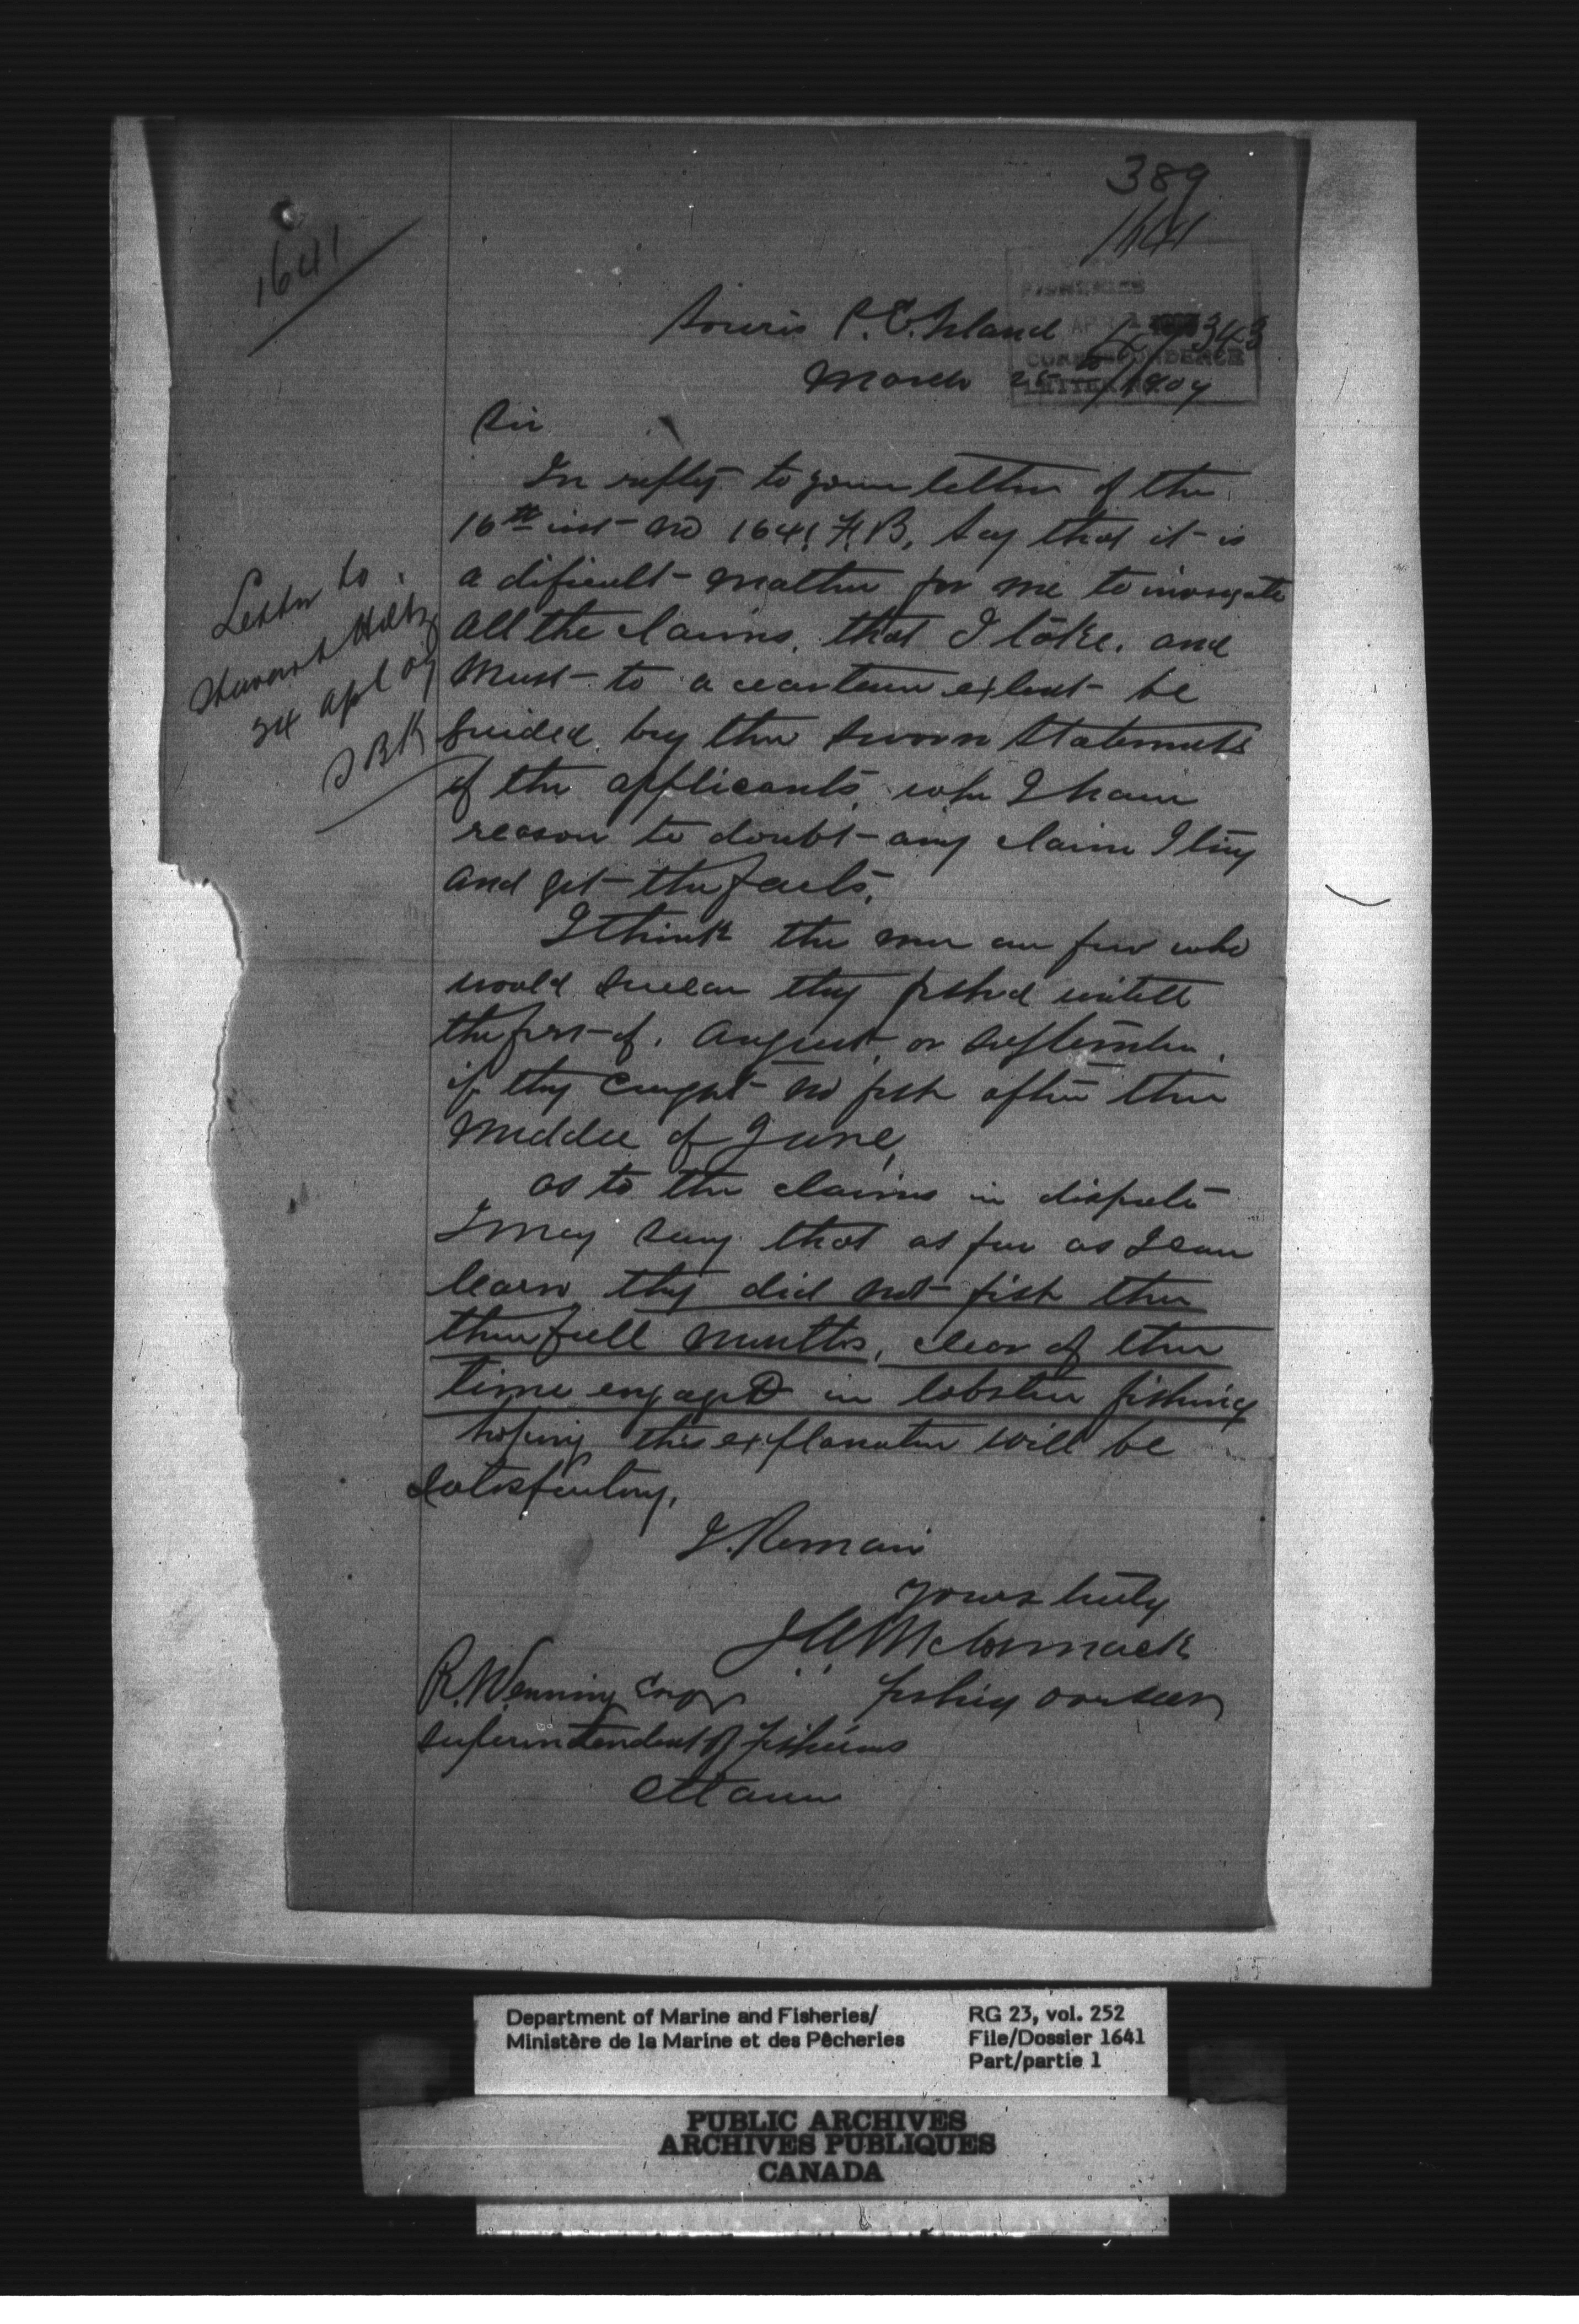 389
1641
1641
FISHERIES
APR
343
CORRESPONDENCE
LETTER
Souris P. E. Island
March 25 1909
Sir
In reply to your letter of the
16th inst no 1641 F.B. Say that it is
a dificult matter for me to
all the claims, that I take, and
must to a ceartain extent be
guided by the sworn statements
of the applicants, whe I have
reason to doubt any claim I try
and get the facts,
I think the men are few who
would swear they fished untill
the first of, August, or September,
if they caught no fish after the
middle of June,
as to the claims in dispute
I may say that as far as I can
learn they did not fish the
three full months, clear of the
time engaged in lobster fishing
hoping this explanation will be
satisfactory,
I. Remain
yours truly
J A McCormack
fishing overseer
R. N. Venning Esqr
Superintendent of fisheries
Ottawa
Letter to
Stewart
24 Apl 09
Department of Marine and Fisheries/
Ministère de la Marine et des Pêcheries
RG 23, vol. 252
File/Dossier 1641
Part/partie 1
PUBLIC ARCHIVES
ARCHIVES PUBLIQUES
CANADA